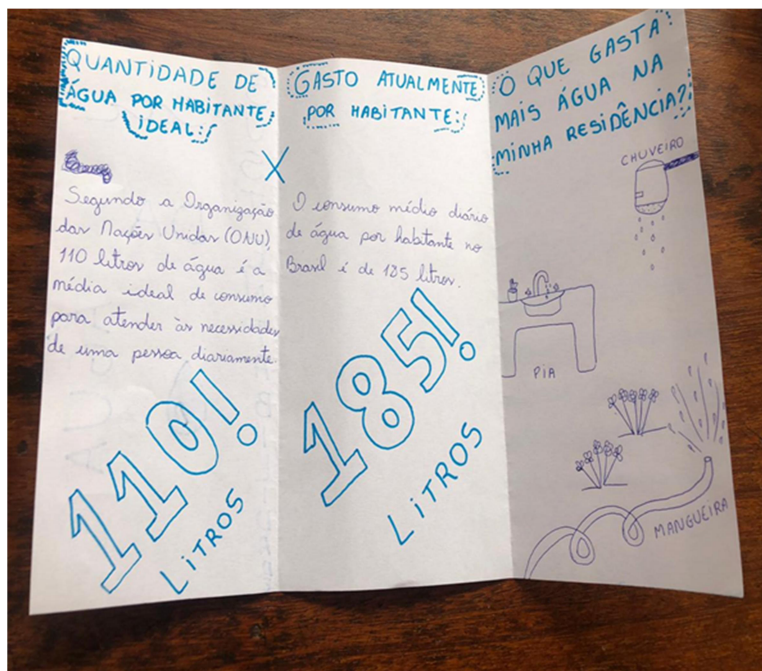 QUANTIDADE DE
ÁGUA POR HABITANTE
IDEAL:
X
Segundo a Organização
das Nações Unidas (ONU),
110 litros de água é a
média ideal de consumo
para atender às necessidades
de uma pessoa diariamente.
110!
LITROS
GASTO ATUALMENTE
POR HABITANTE:
O consumo médio diário
de água por habitante no
Brasil é de 185 litros.
185!
LITROS
O QUE GASTA
MAIS ÁGUA NA
MINHA RESIDÊNCIA?
CHUVEIRO
PIA
MANGUEIRA